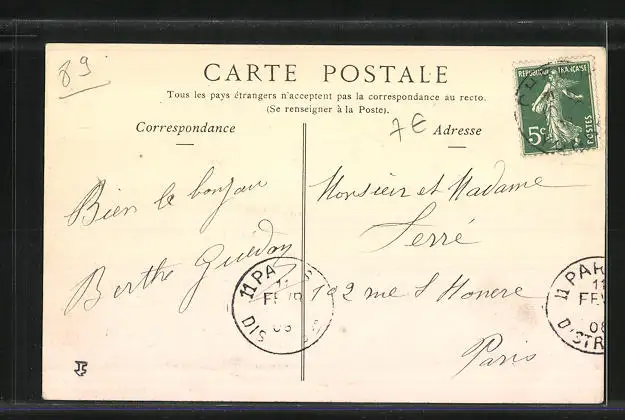 89
CARTE POSTALE
Tous les pays étrangers n'acceptent pas la correspondance au recto.
(Se renseigner à la Poste).
7€
Correspondance
Adresse
REPUBLIQUE FRANÇAISE
5c
POSTES
Bien le bonjour
Berthe Guédon
Monsieur et Madame
Serré
192 rue St Honoré
Paris
11 PA
11
FEVR
08
DIS
11 PAR
11
FEV
08
DISTR